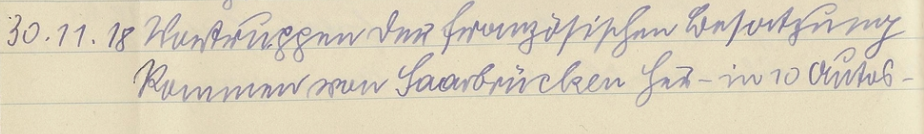 30.11.18 Vortruppen der französischen Besatzung
kommen von Saarbrücken her – in 10 Autos –